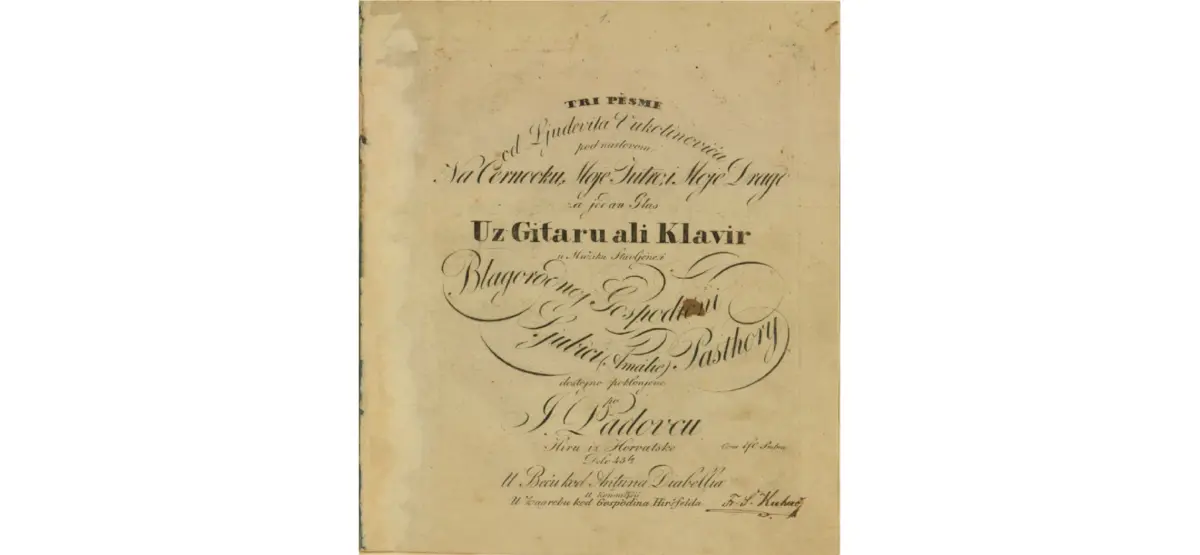 TRI PĚSME
od Ljudevita Vukotinovića
pod naslovom
Na Černooku, Moje Jutro, i Moje Drage
za jedan Glas
Uz Gitaru ali Klavir
u Mužiku Stavljene i
Blagorodnoj Gospodični
Ljubici (Amalie) Pásthory
dostojno poklonjene
po
I. Padovcu
Hiru iz Horvatske
Dělo 15
U Beču kod Antuna Diabellia
U Zagrebu kod Gospodina Hiršfelda
Fr. Š. Kuhač